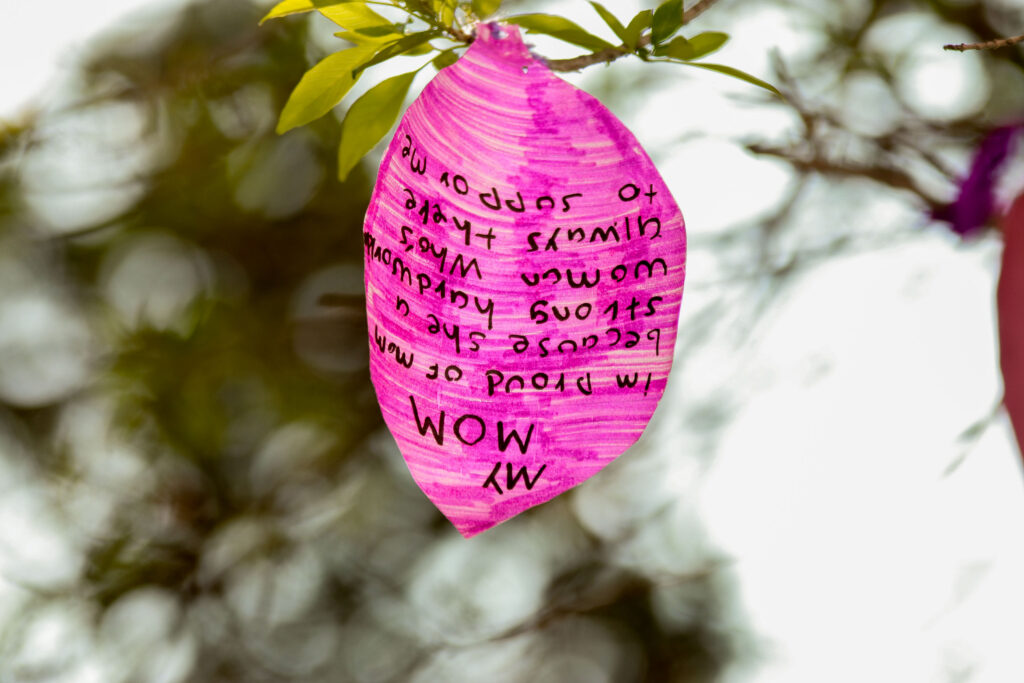 MY
MOM
im proud of mom
because she a
strong hardworking
women Who's
always there
to suppor me